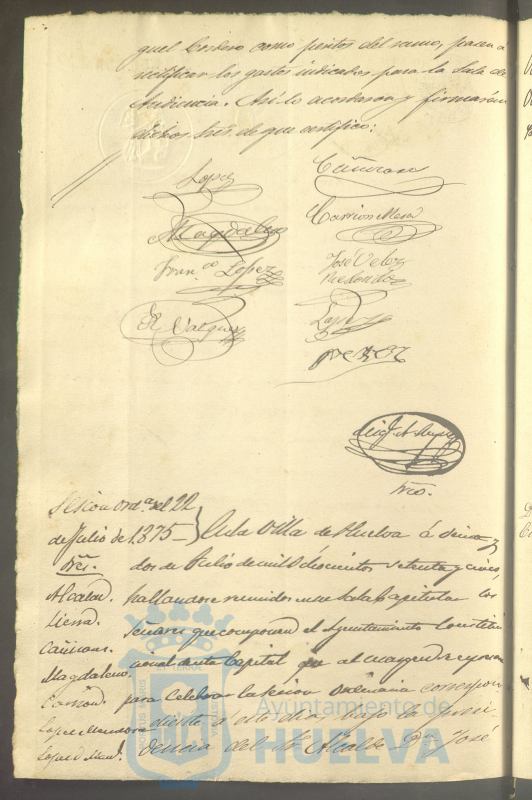 quel Cordero como peritos del ramo, para á
rectificar los gastos indicados para la Sala de
Audiencia. Asi lo acordaron y firmaron
dichos Sres. de que certifico:
Lopez
Cañizares
Magdaleno
Carrion Mesa
Fran.co Lopez
José Velez
Redondo
R. Vazquez
Lopez
Srio.
Sesion ord.a del 22
de Julio de 1875
En la Villa de Huelva á veinte y
Sres.
dos de Julio de mil ochocientos setenta y cinco
Alcalde.
hallandose reunidos en su Sala Capitular los
Sierra.
Señores que componen el Ayuntamiento Constitu
Cañizares.
cional de esta Capital que al margen se espresan
Magdaleno.
para celebrar la sesion ordinaria correspon
Carrion.
diente á este dia, bajo la presi
Lopez Mendoza
dencia del Sr. Alcalde Dn. José
Lopez
Ayuntamiento de
HUELVA